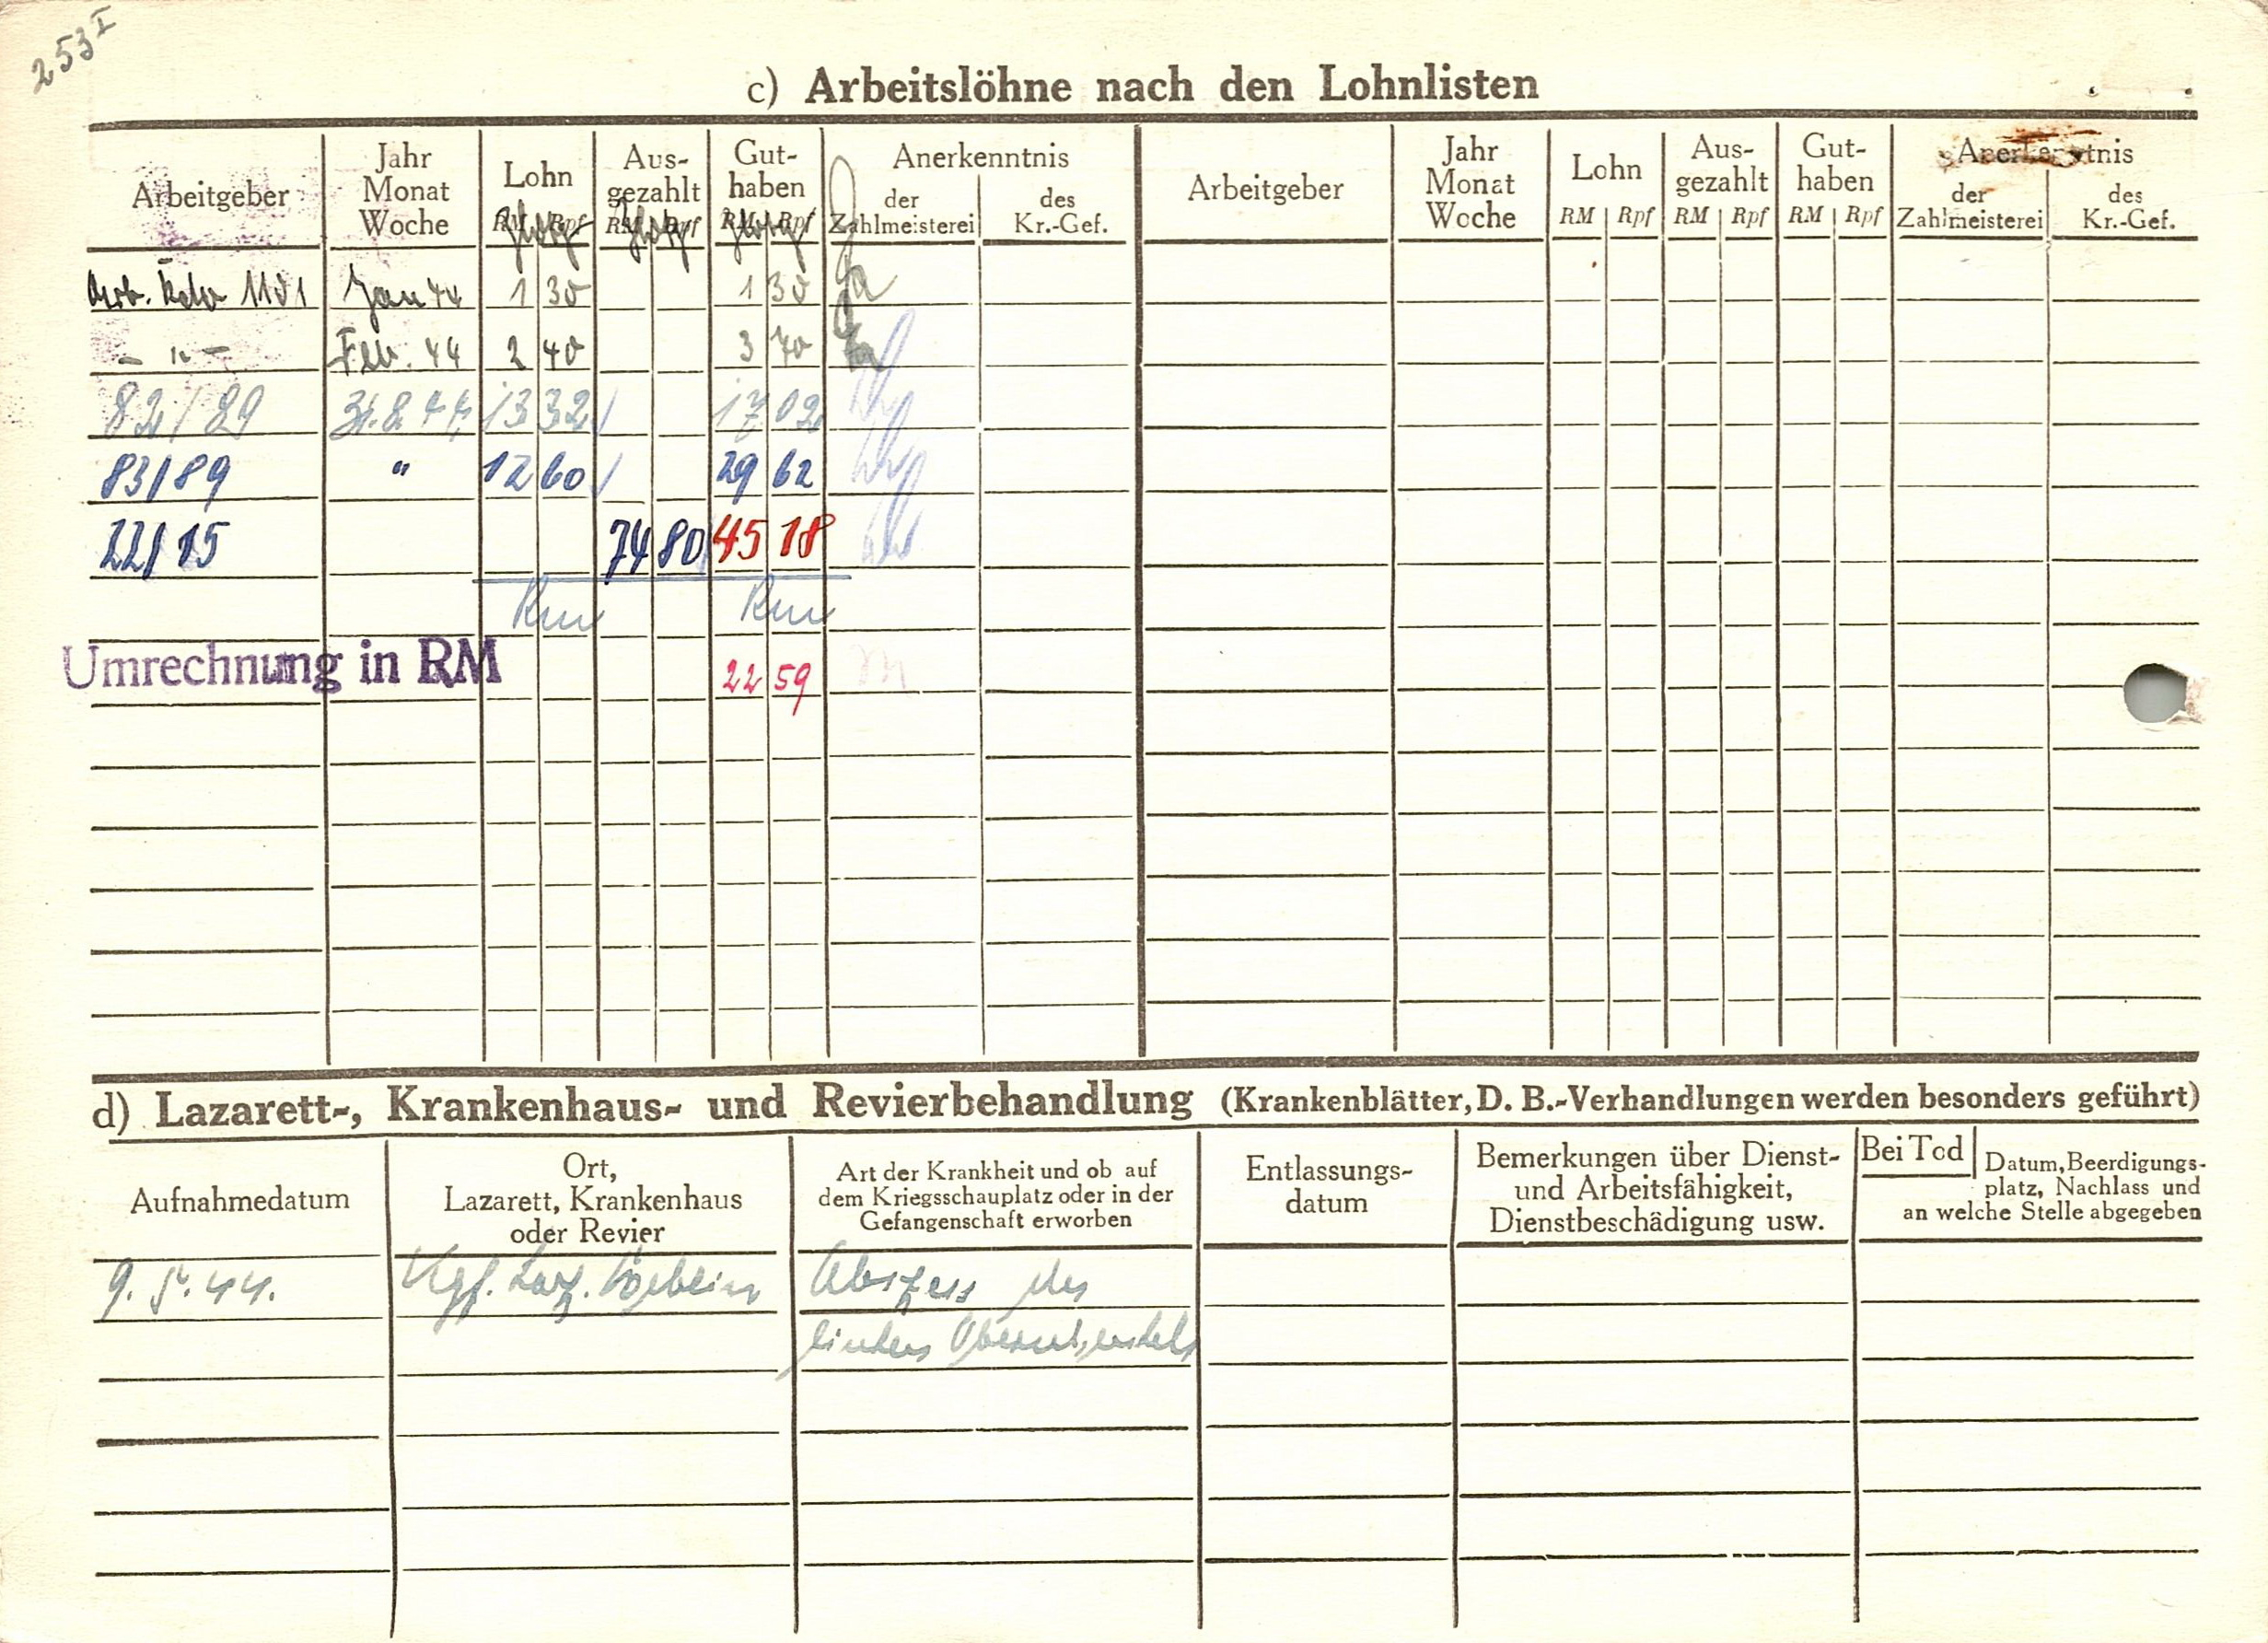 253 I
c) Arbeitslöhne nach den Lohnlisten
Arbeitgeber
Jahr
Monat
Woche
Lohn
RM Rpf
Zloty
Aus-
gezahlt
RM Rpf
Zloty
Gut-
haben
RM Rpf
Zloty
Anerkenntnis
der
Zahlmeisterei
des
Kr.-Gef.
Arbeitgeber
Jahr
Monat
Woche
Lohn
RM Rpf
Aus-
gezahlt
RM Rpf
Gut-
haben
RM Rpf
Anerkenntnis
der
Zahlmeisterei
des
Kr.-Gef.
Arb. Kdo 1101 Jan 44 1 30 1 30
- " - Feb. 44 2 40 3 70
82/89 31.8.44 13 32 17 02
83/89 " 12 60 29 62
22/15 74 80 45 18
Rm Rm
Umrechnung in RM 22 59
d) Lazarett-, Krankenhaus- und Revierbehandlung (Krankenblätter, D. B.-Verhandlungen werden besonders geführt)
Aufnahmedatum
Ort,
Lazarett, Krankenhaus
oder Revier
Art der Krankheit und ob auf
dem Kriegsschauplatz oder in der
Gefangenschaft erworben
Entlassungs-
datum
Bemerkungen über Dienst-
und Arbeitsfähigkeit,
Dienstbeschädigung usw.
Bei Tod
Datum, Beerdigungs-
platz, Nachlass und
an welche Stelle abgegeben
9. 5. 44. Kgf. Laz. Abszess des
linken Oberschenkels